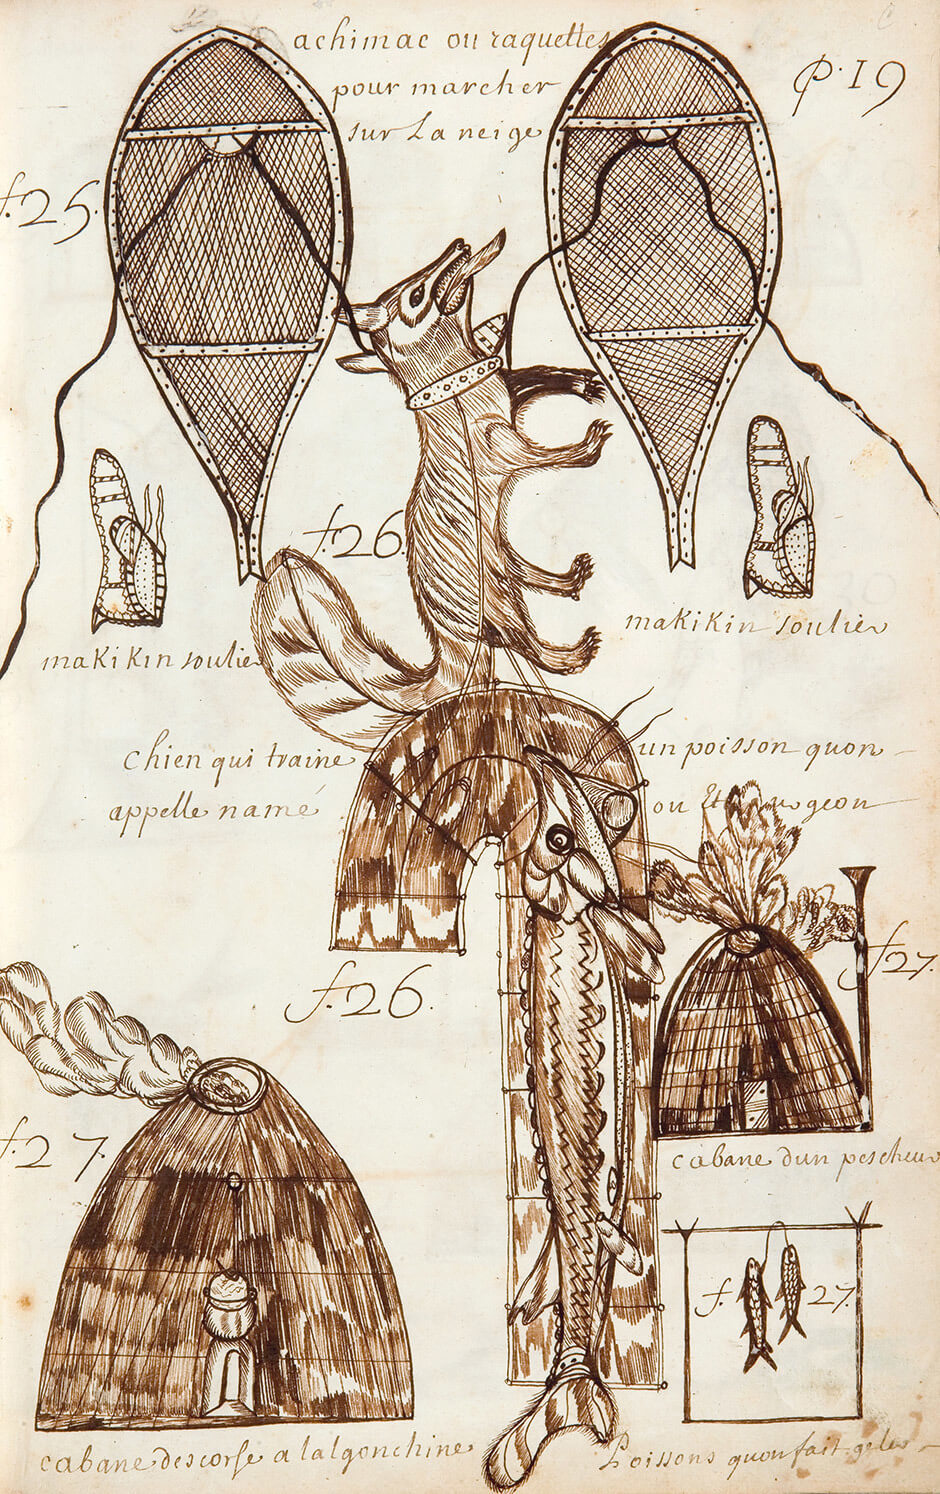 achimac ou raquettes
pour marcher
sur La neige
P. 19
f. 25.
f. 26.
makikin soulier
makikin soulier
chien qui traine un poisson quon
appellé namé ou geon
f. 26.
f. 27.
f. 27.
cabane dun pescheur
f. 27.
cabane descorse a lalgonchine
Poissons quon fait geler